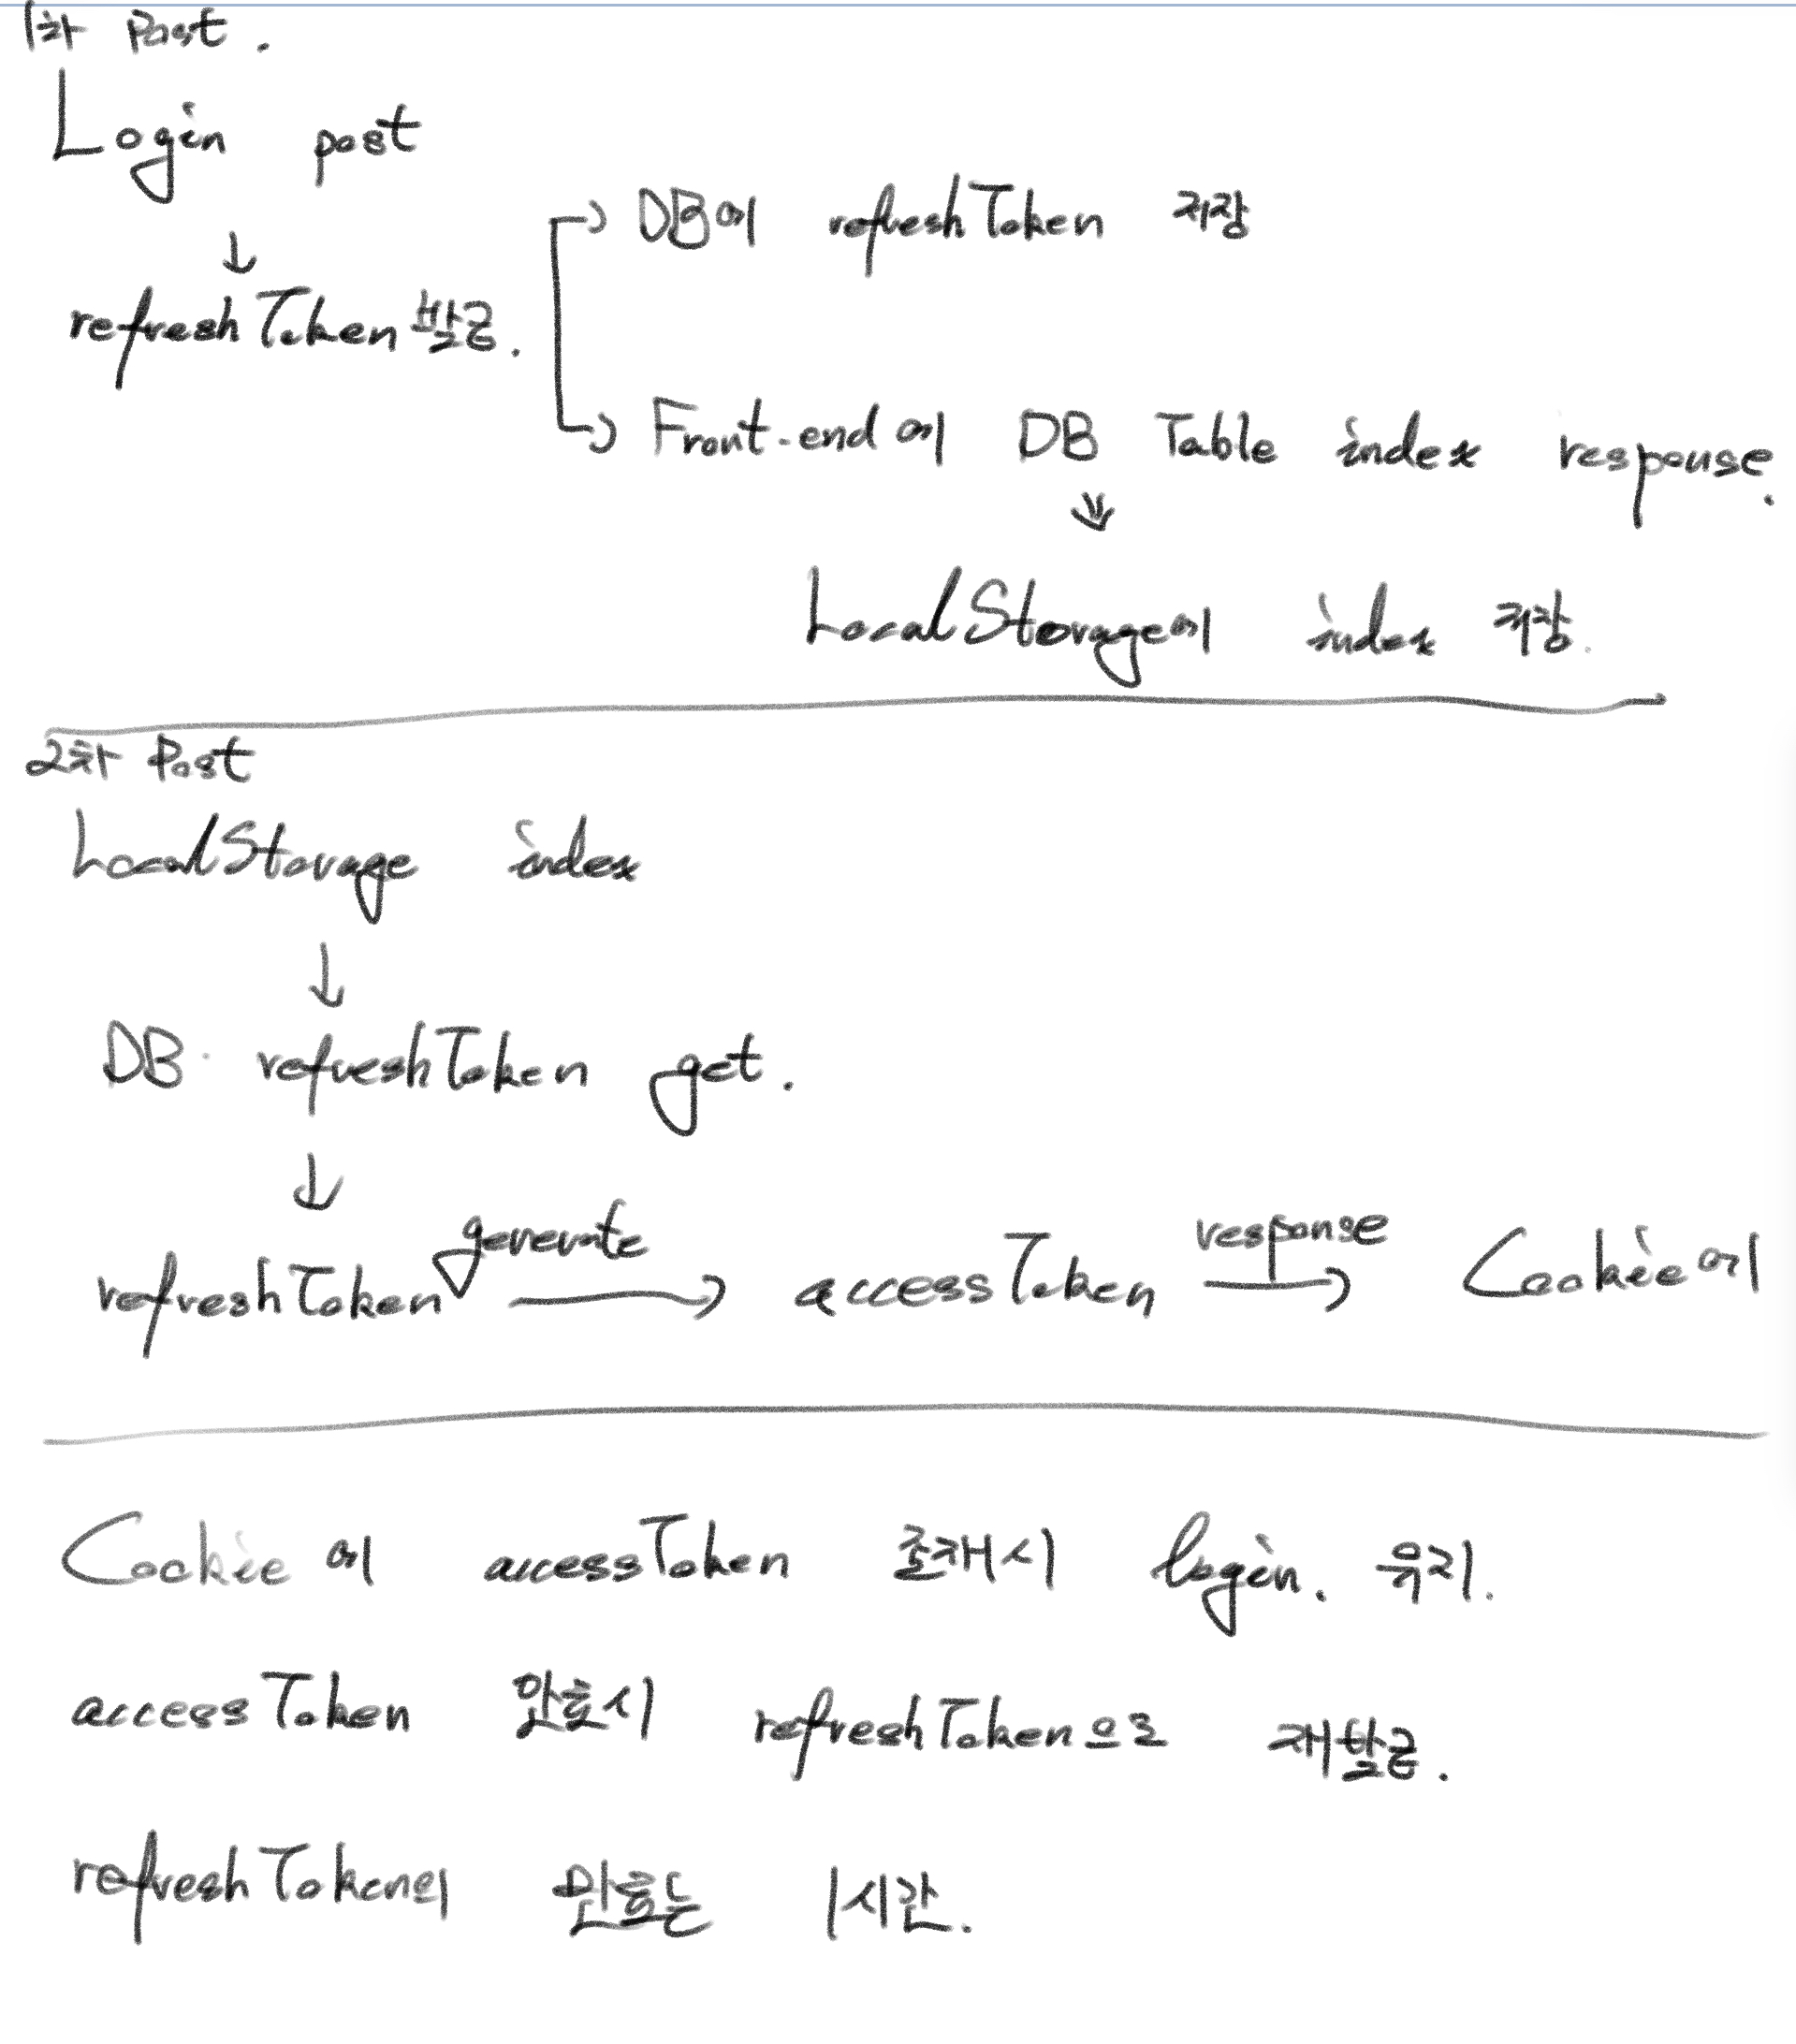 1차 Post.
Login post
↓
refreshToken 발급.
→ DB에 refreshToken 저장
→ Front-end에 DB Table index response.
↓
LocalStorage에 index 저장.
2차 Post
LocalStorage index
↓
DB refreshToken get.
↓
refreshToken generate → accessToken response → Cookie에
Cookie에 accessToken 존재시 login. 유지.
accessToken 만료시 refreshToken으로 재발급.
refreshToken의 만료는 1시간.